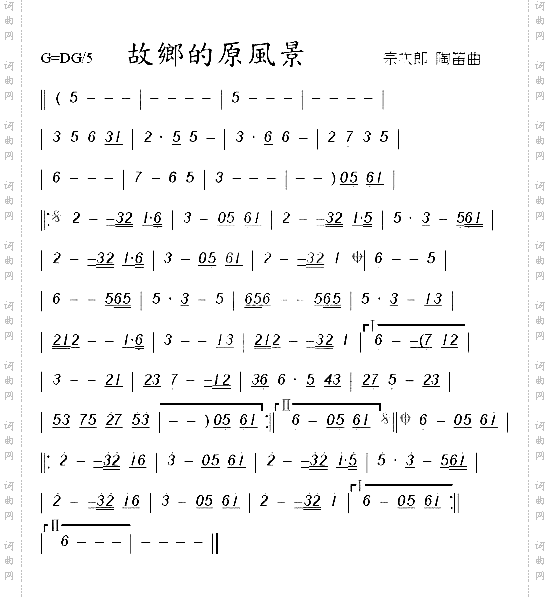 G=DG/5 故鄉的原風景 宗次郎 陶笛曲
‖ ( 5 – – – | – – – – | 5 – – – | – – – – |
| 3 5 6 31 | 2 · 5 5 – | 3 · 6 6 – | 2 7 3 5 |
| 6 – – – | 7 – 6 5 | 3 – – – | – – ) 05 61 |
‖: 𝄋 2 – –32 1·6 | 3 – 05 61 | 2 – –32 1·5 | 5 · 3 – 561 |
| 2 – –32 1·6 | 3 – 05 61 | 2 – –32 1 𝄌| 6 – – 5 |
| 6 – – 565 | 5 · 3 – 5 | 656 – – 565 | 5 · 3 – 13 |
| 212 – – 1·6 | 3 – – 13 | 212 – –32 1 | I 6 – –(7 12 |
| 3 – – 21 | 23 7 – –12 | 36 6 · 5 43 | 27 5 – 23 |
| 53 75 27 53 | – – ) 05 61 :‖ II 6 – 05 61 𝄋‖𝄌 6 – 05 61 |
‖: 2 – –32 16 | 3 – 05 61 | 2 – –32 1·5 | 5 · 3 – 561 |
| 2 – –32 16 | 3 – 05 61 | 2 – –32 1 | I 6 – 05 61 :‖
| II 6 – – – | – – – – ‖
词曲网